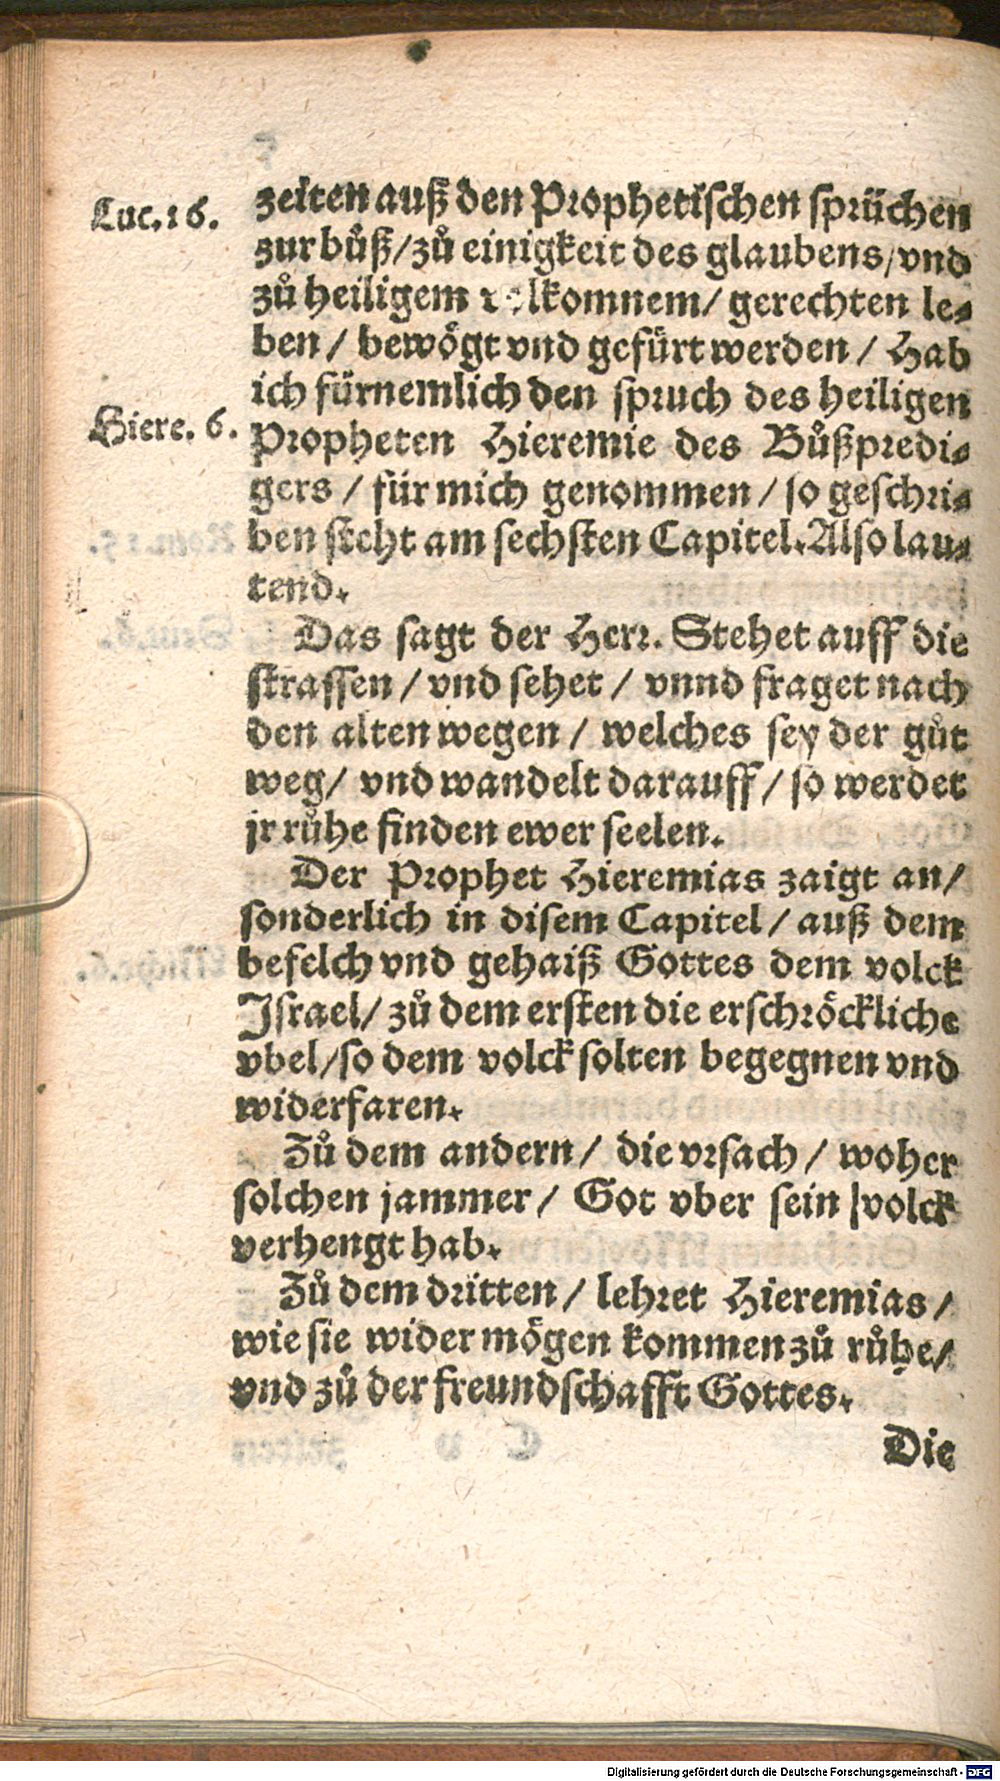 Luc.16.
zeiten auß den Prophetischen sprüchen
zur bůß/zů einigkeit des glaubens/vnd
zů heiligem volkomnem/ gerechten le⸗
ben/ bewögt vnd gefürt werden/ Hab
ich fürnemlich den spruch des heiligen
Hiere. 6.
Propheten Hieremie des Bůßpredi⸗
gers / für mich genommen / so geschri⸗
ben steht am sechsten Capitel. Also lau⸗
tend.
Das sagt der Herr. Stehet auff die
strassen / vnd sehet / vnnd fraget nach
den alten wegen / welches sey der gůt
weg/ vnd wandelt darauff / so werdet
jr růhe finden ewer seelen.
Der Prophet Hieremias zaigt an/
sonderlich in disem Capitel / auß dem
befelch vnd gehaiß Gottes dem volck
Israel/ zů dem ersten die erschröckliche
vbel/so dem volck solten begegnen vnd
widerfaren.
Zů dem andern / die vrsach / woher
solchen jammer / Got vber sein volck
verhengt hab.
Zů dem dritten / lehret Hieremias /
wie sie wider mögen kommen zů růhe/
vnd zů der freundschafft Gottes.
Die
Digitalisierung gefördert durch die Deutsche Forschungsgemeinschaft - DFG